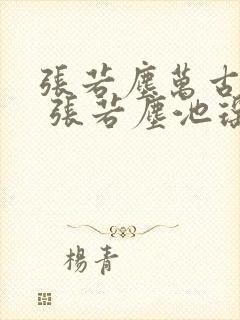 張若塵萬古
張若塵池
楊青